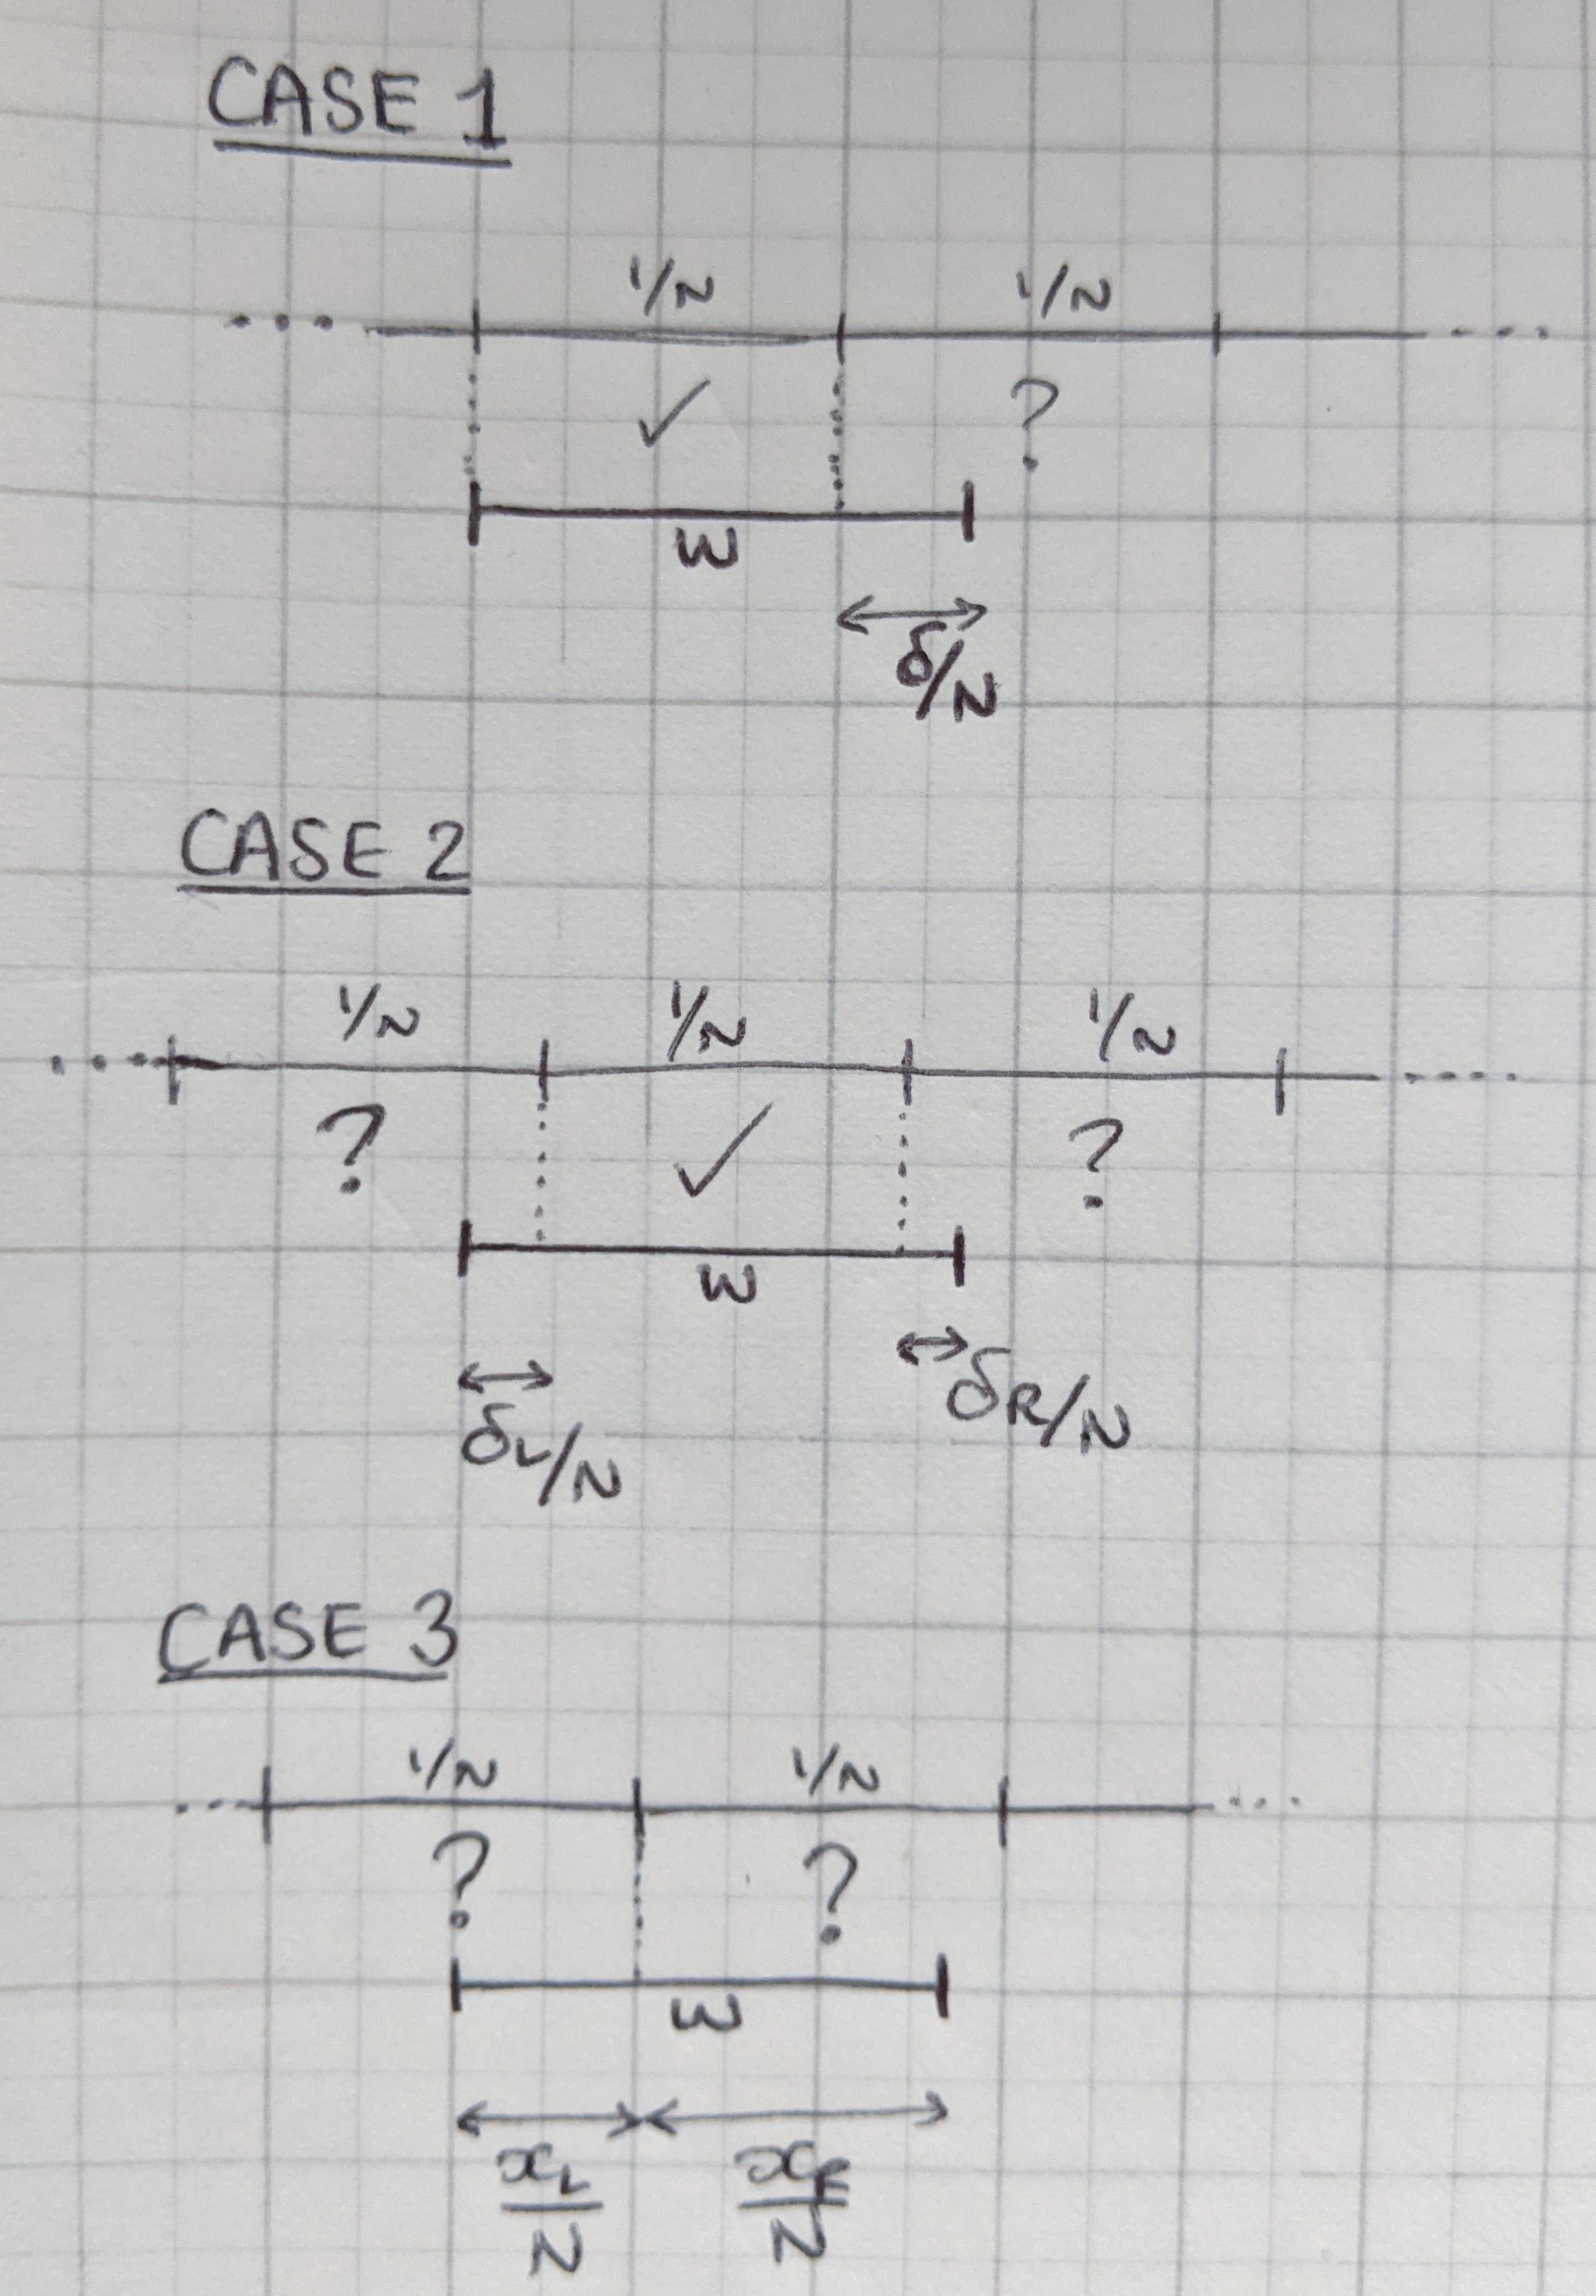 CASE 1
... 1/N 1/N ....
✓ ?
w
δ/N
CASE 2
1/N 1/N 1/N
.... ....
? ✓ ?
w
δL/N δR/N
CASE 3
1/N 1/N
... ...
? ?
w
xL/N xR/N